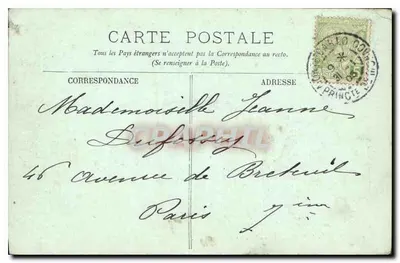 CARTE POSTALE
Tous les Pays étrangers n'acceptent pas la Correspondance au recto.
(Se renseigner à la Poste).
CORRESPONDANCE
ADRESSE
Mademoiselle Jeanne
Dufossey
46 avenue de Breteuil
Paris 7im